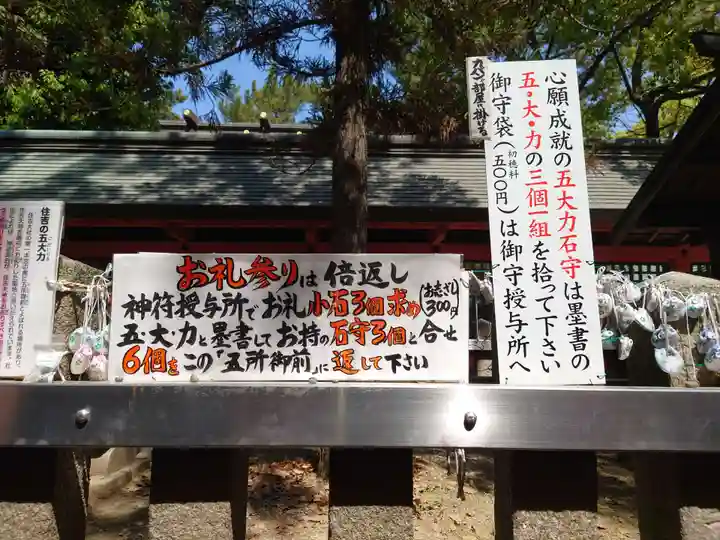 カバンや部屋に掛ける
心願成就の五大力石守は墨書の
五・大・力の三個一組を拾って下さい
御守袋(初穂料五〇〇円)は御守授与所へ
お礼参りは倍返し
神符授与所でお礼小石3個求め(お志ざし300円)
五・大・力と墨書してお持の石守3個と合せ
6個をこの「五所御前」に返して下さい
住吉の五大力